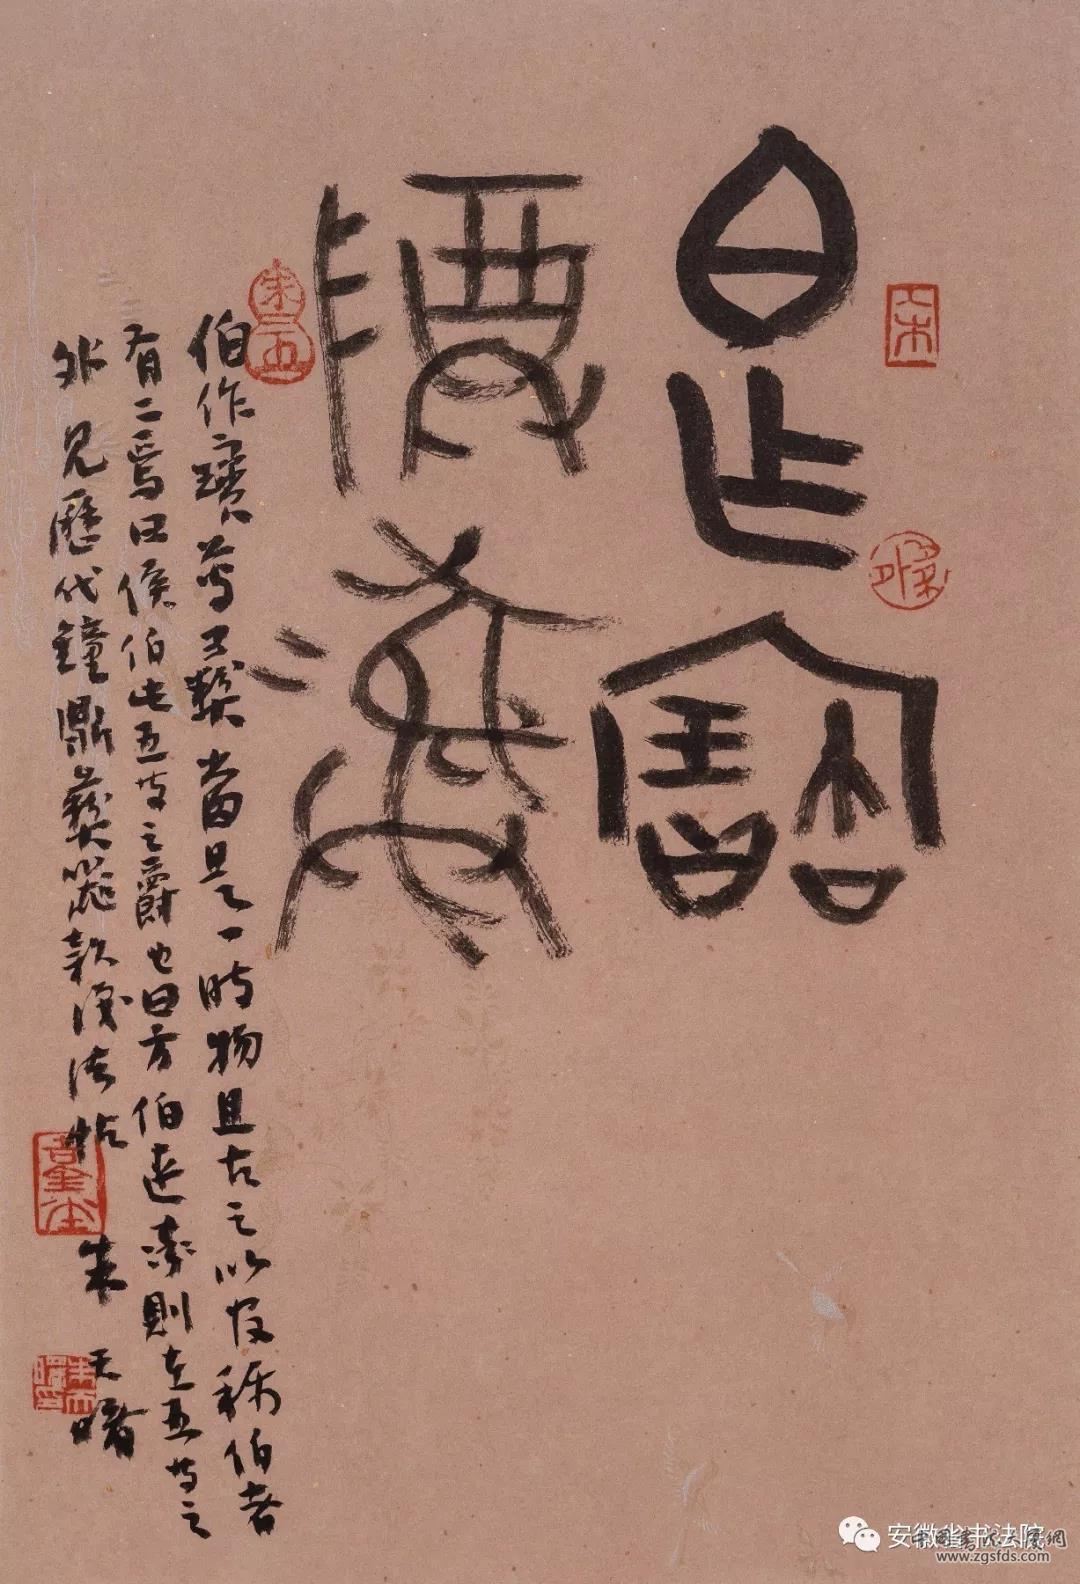 白乍寶
障彝
伯作寶尊彝當是一時物且古之以稱伯者
有二焉曰侯伯此五等之爵也曰方伯連率則在五等之
外見歷代鐘鼎彝器款識法帖 朱天曙
安徽省书法院
www.zgsfds.com